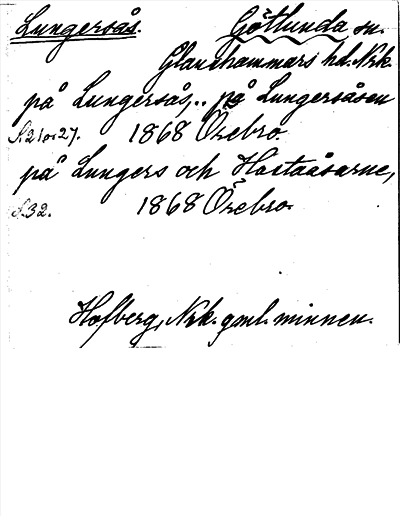 Lungersås. Götlunda sn.
Glanshammars hd. Nrk
på Lungersås,.. på Lungersåsen
S. 21 o. 27. 1868 Örebro.
på Lungers och Hastaåsarne,
S. 32. 1868 Örebro.
Hofberg, Nrk. gml. minnen.